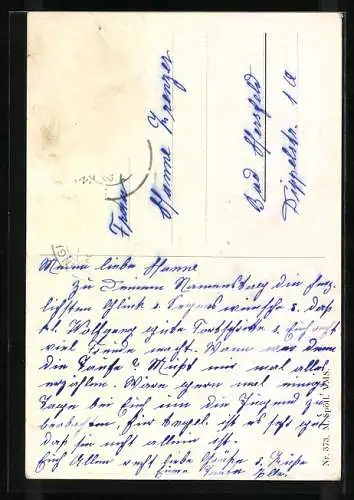 Frau
Hanne Krenzer
Bad Hersfeld
Dippelstr. 1 a
Meine liebe Hanne
Zu Deinem Namenstag die herz-
lichsten Glück u. Segenswünsche u. daß
kl. Wolfgang gute Fortschritte u. Euch recht
viel Freude macht. Wann war denn
die Taufe? Mußt mir mal alles
erzählen. Wäre gern mal einige
Tage bei Euch um die Jugend zu
beobachten. Für Vogel ist es sehr gut
daß sie nicht allein ist.
Euch Allen recht liebe Grüße u. Küsse
Eure Tante
Nr. 373. M. Spötl.